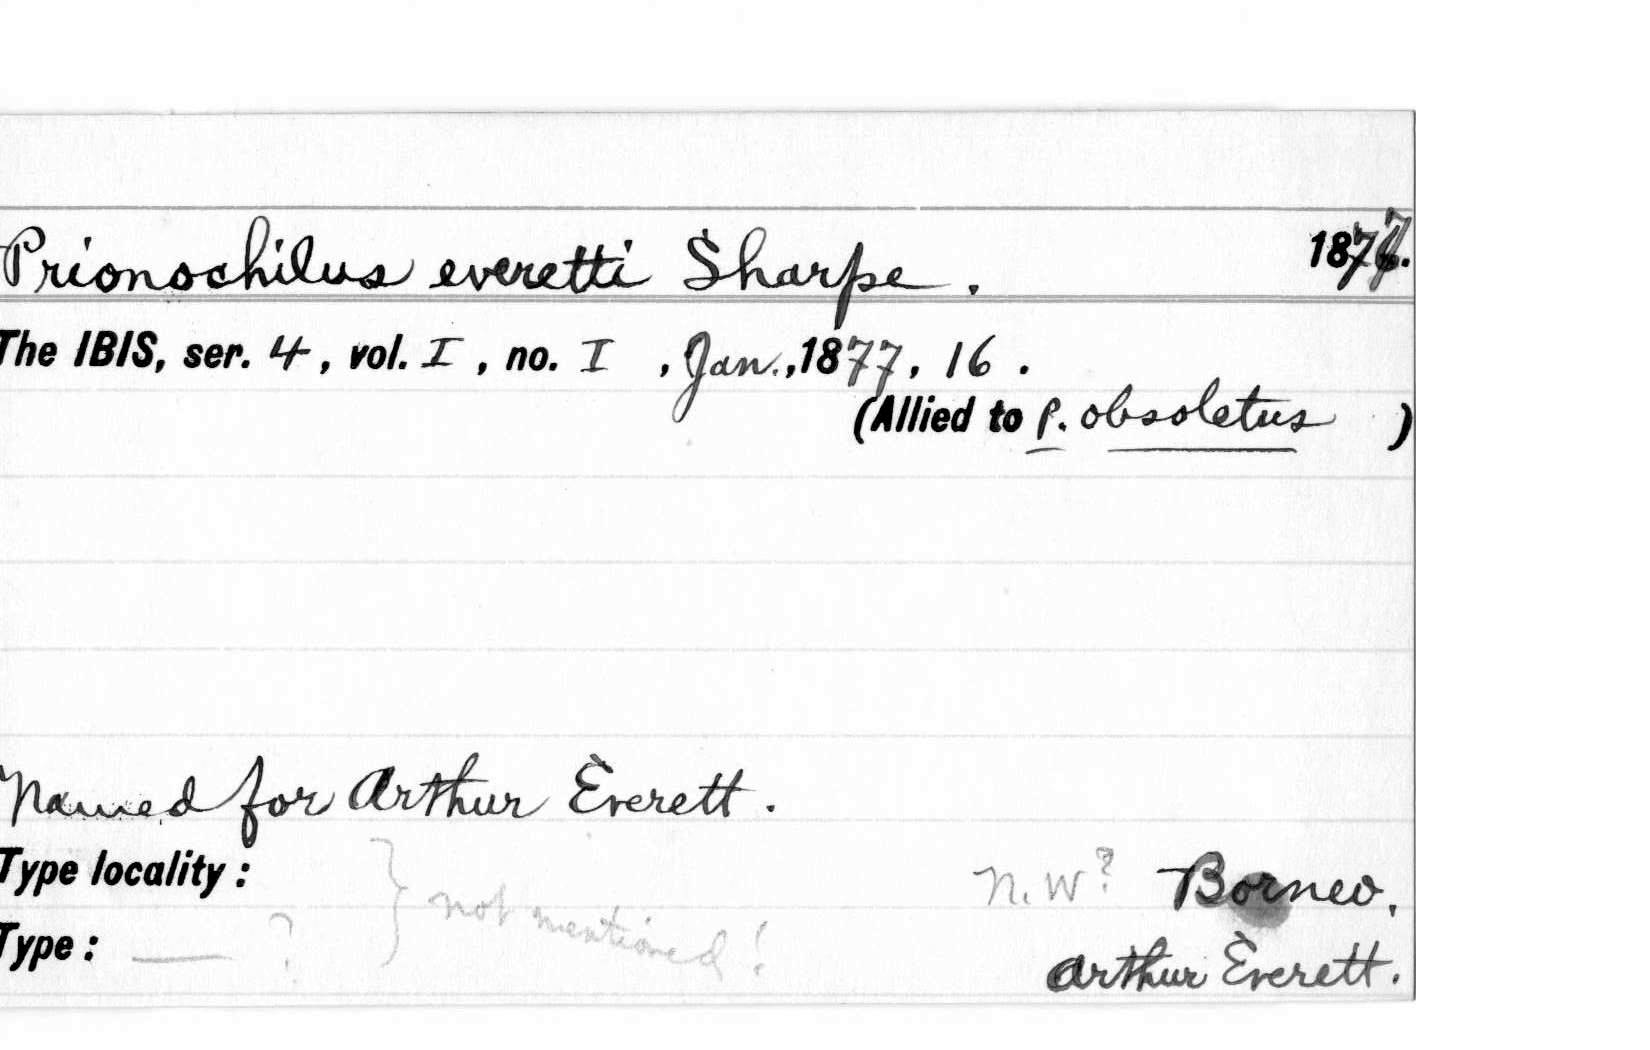 Prionochilus everetti Sharpe. 1877.
The IBIS, ser. 4, vol. I, no. I, Jan., 1877, 16.
(Allied to P. obsoletus)
Named for Arthur Everett.
Type locality: N.W? Borneo.
} not mentioned!
Type: — ? Arthur Everett.